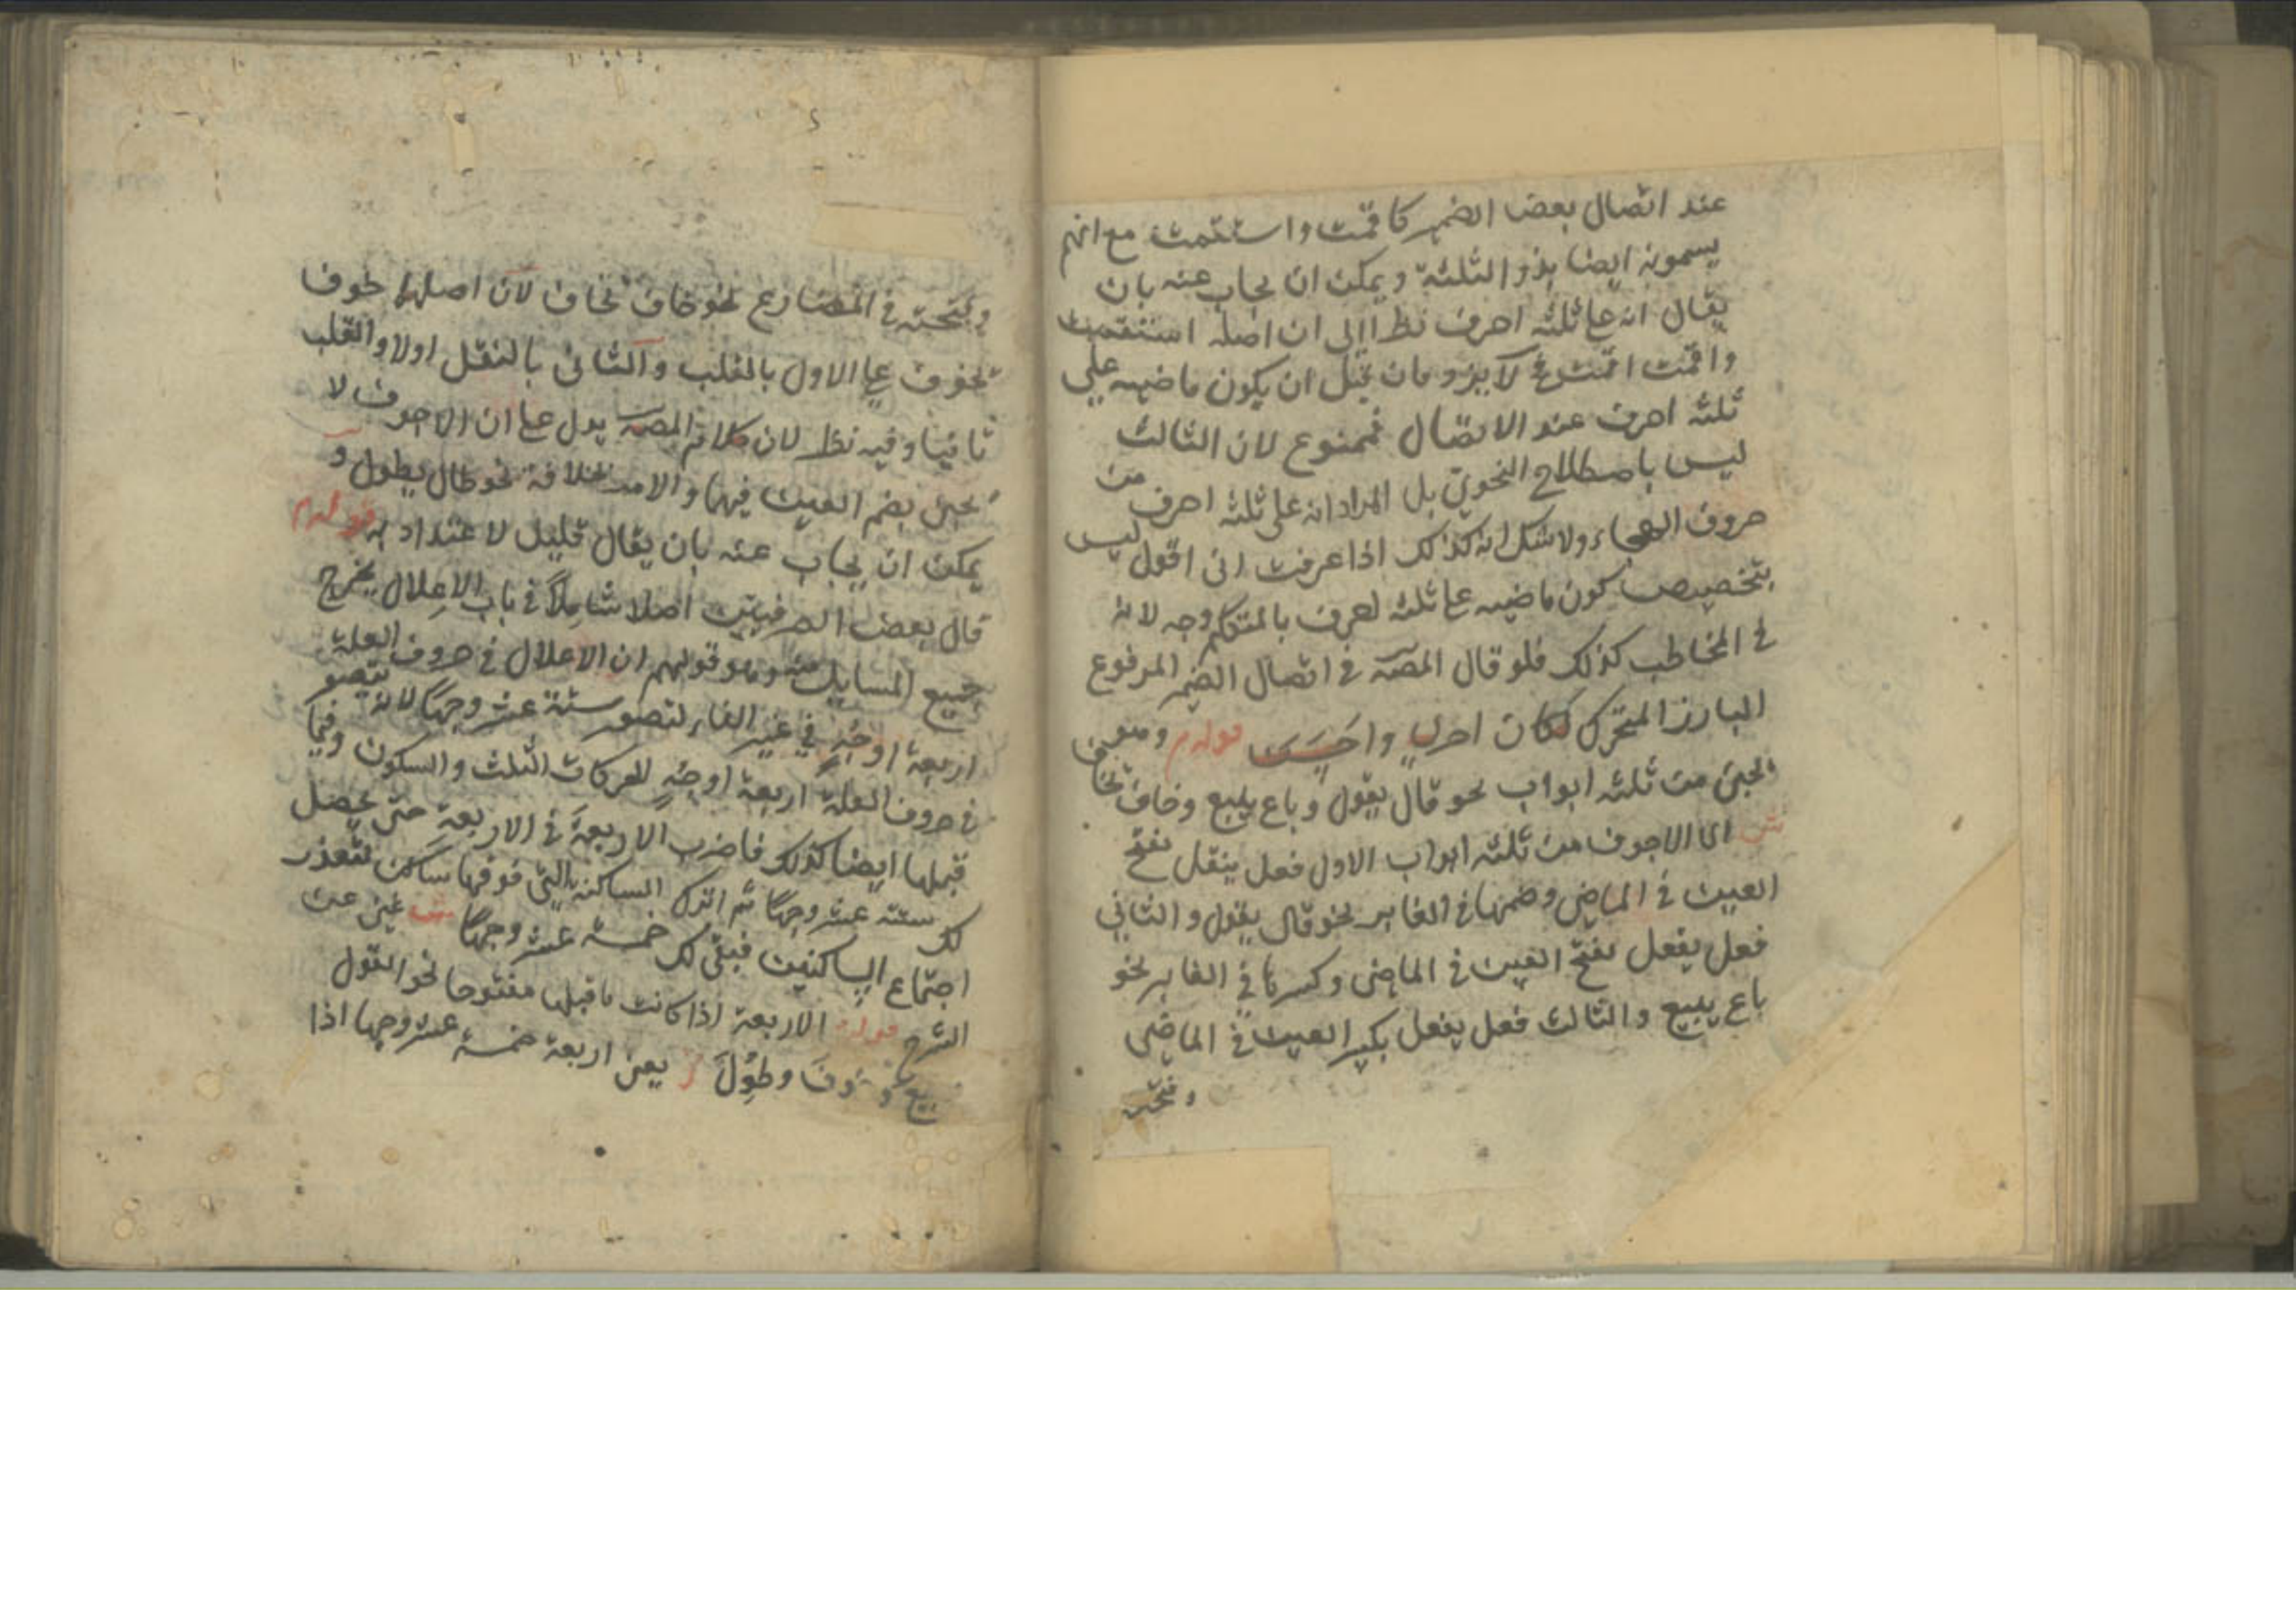 عند اتصال بعض الضمير كاقمت واستقمت مع انهم
يسمونه ايضا بذو الثلثة ويمكن ان يجاب عنه بان
يقال انه على ثلثة احرف نظرا الى ان اصله استقمت
واقمت فلا يرد فان قيل ان يكون ماضيه على
ثلثة احرف عند الاتصال فممنوع لان الثالث
ليس باصطلاح النحوي بل المراد انه على ثلثة احرف من
حروف الهجاء ولا شك انه كذلك اذا عرفت انى اقول ليس
بتخصيص كون ماضيه على ثلثة احرف بالمتكلم وجه لانه
في المخاطب كذلك فلو قال المصه في اتصال الضمير المرفوع
البارز المتحرك لكان احرى واحسن قوله وهو
يجئ من ثلثة ابواب نحو قال يقول وباع يبيع وخاف يخاف
ش اى الاجوف من ثلثة ابواب الاول فعل ينقل بفتح
العين في الماضي وضمها في الغابر نحو قال يقول والثاني
فعل يفعل بفتح العين في الماضى وكسرها في الغابر نحو
باع يبيع والثالث فعل يفعل بكسر العين في الماضى
وفتحه
وفتحته في المضارع نحو خاف يخاف لان اصلهما خوف
يخوف على الاول بالقلب والثانى بالنقل اولا والقلب
ثانيا وفيه نظر لان كلام المصه يدل على ان الاجوف لا
يجئ بضم العين فيهما والامر بخلافه نحو طال يطول و
يمكن ان يجاب عنه بان يقال قليل لا عتداد به قوله
قال بعض الصرفيين اصلا شاملا في باب الاعلال يخرج
جميع المسايل منه وهو قولهم ان الاعلال في حروف العلة
اربعة اوجه في غير الفاء لتصور ستة عشر وجها لانه يتصور
في حروف العلة اربعة اوجه للحركات الثلث والسكون وفيما
قبلها ايضا كذلك فاضرب الاربعة في الاربعة حتى يحصل
لك ستة عشر وجها ثم اترك الساكنة التى فوقها ساكن لتعذر
اجتماع الساكنين فبقى لك خمسة عشر وجها ش غنى عن
الشرح قوله الاربعة اذا كانت ما قبلها مفتوحا نحو القول
بيع و وف وطول يعنى اربعة خمسة عشر وجها اذا